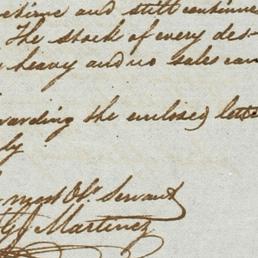 and still continue
The stock of every des-
heavy and no sales can
warding the enclosed letter
ly
most Obt. Servant
Martinez